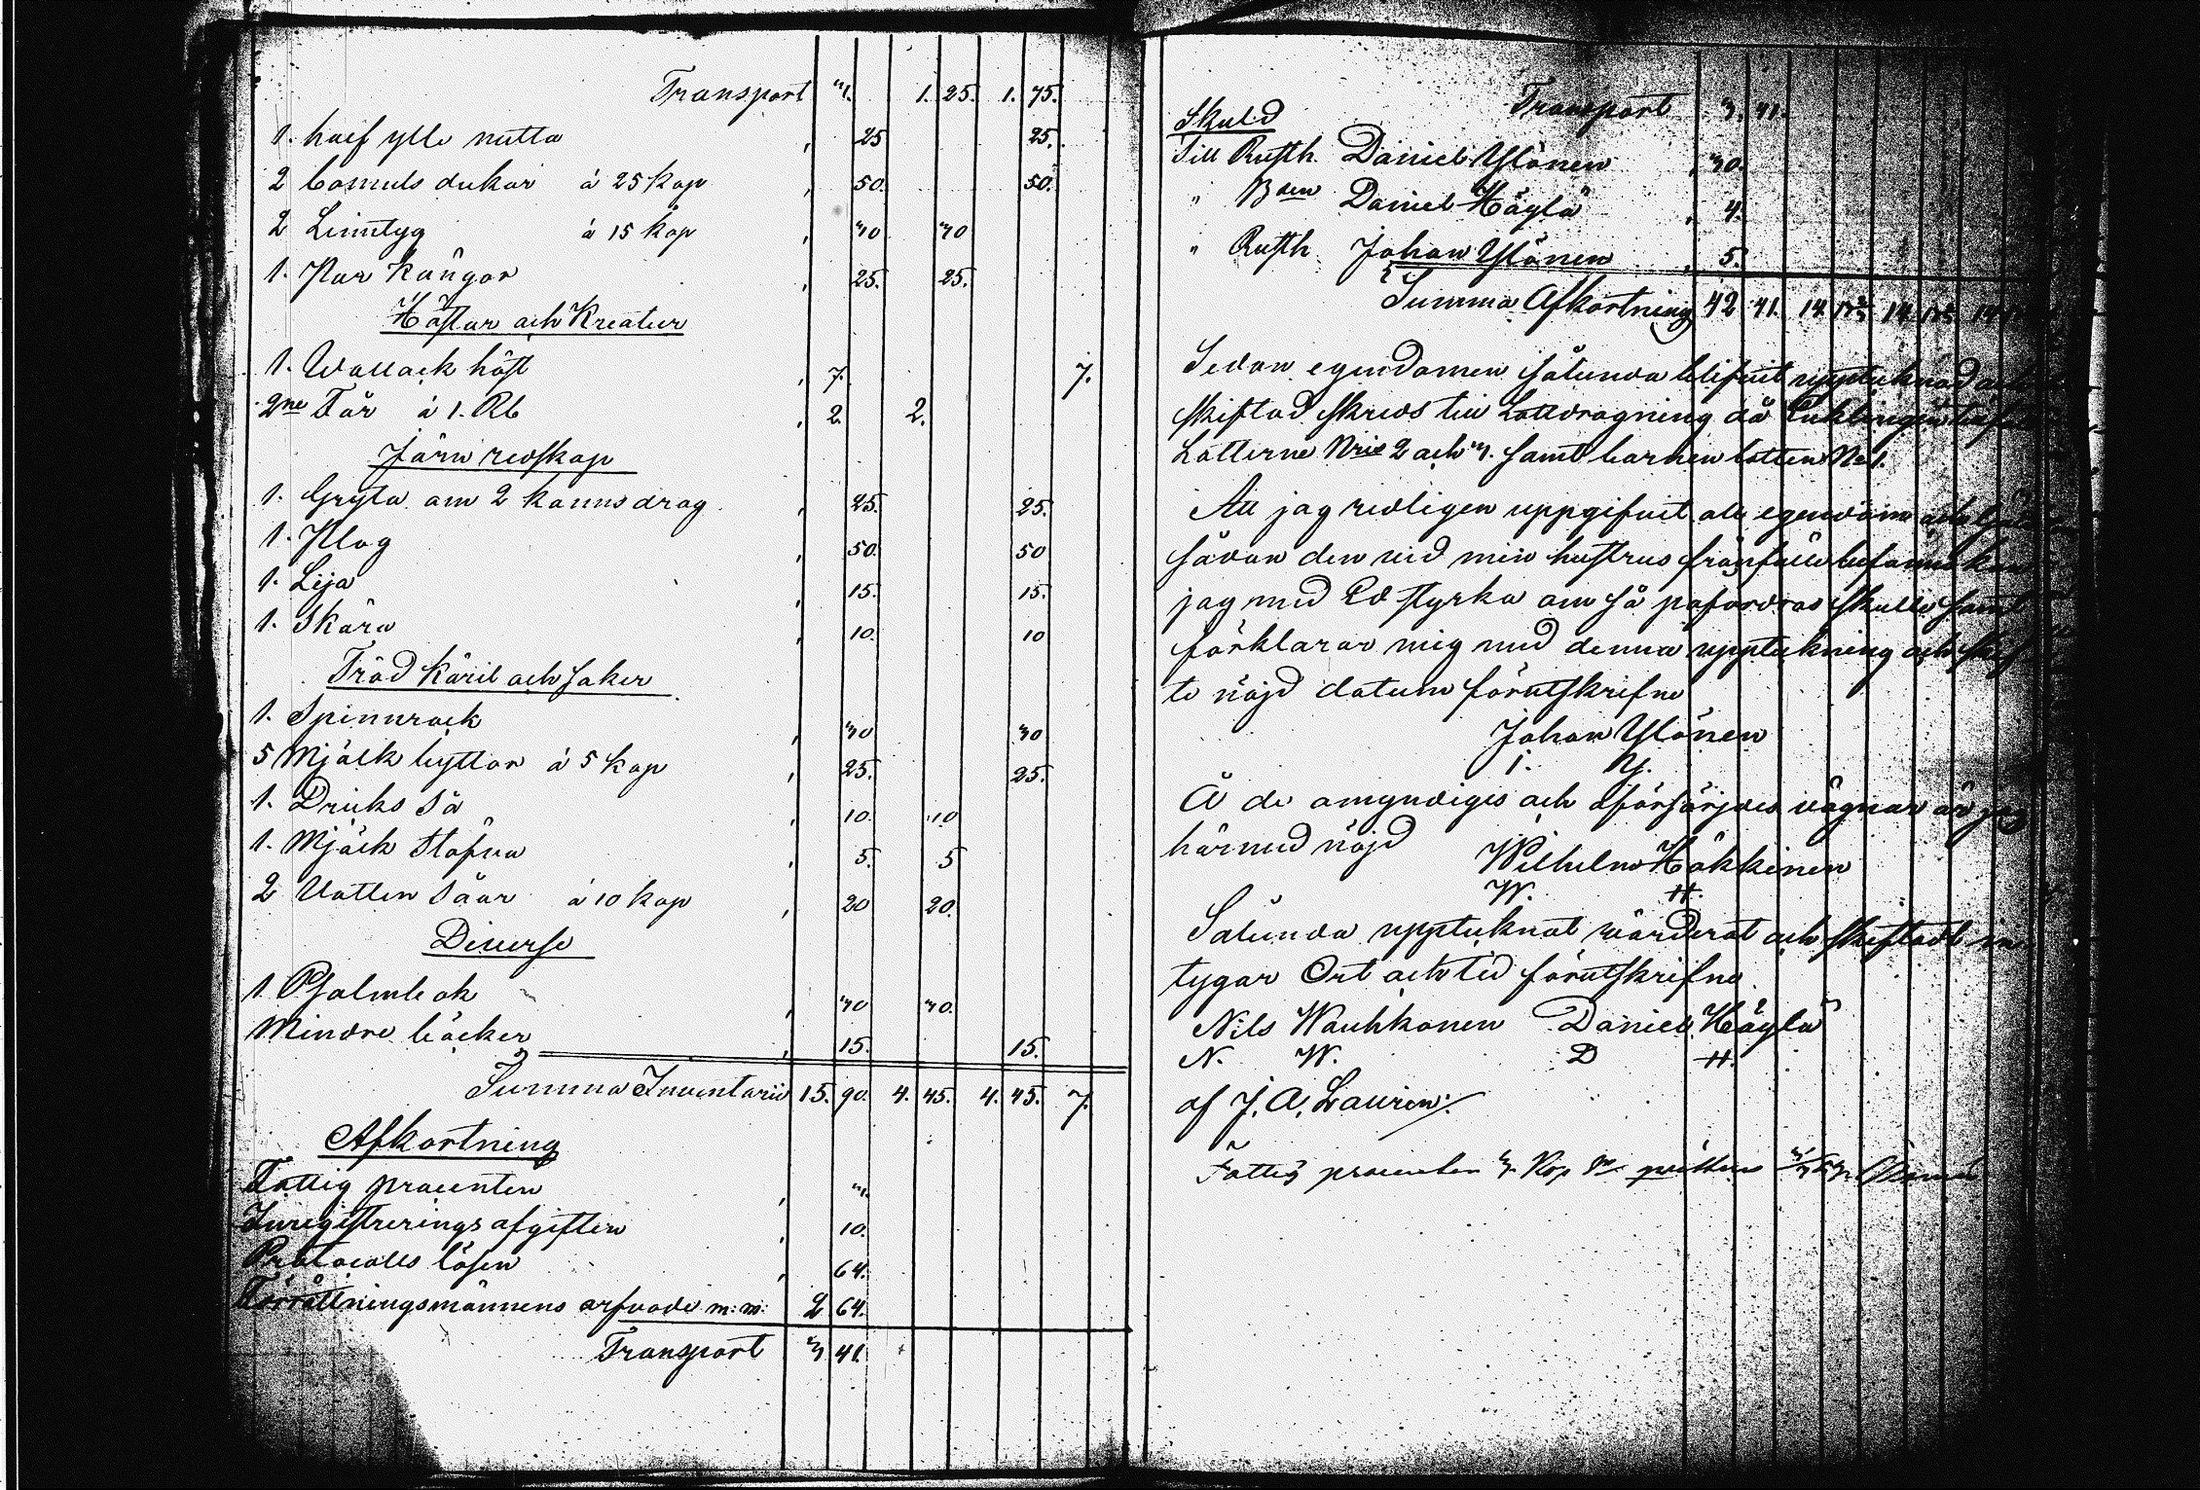 Transport 3. 1. 25. 1. 75.
1. half ylle mutta , 25 25.
2 bomuls dukar á 25 kop , 50. 50.
2 Linntyg á 15 kop , 30 30
1. Par kängor , 25. 25.
Hästar och Kreatur
1. Wallack häst , 7. 7.
2ne Får á 1. Rb , 2. 2.
Järn redskap
1. Gryta om 2 kanns drag , 25. 25.
1. Plog , 50. 50
1. Lija , 15. 15.
1. Skära , 10. 10
Träd Käril och saker
1. Spinnrock , 30 30
5 Mjölk byttor á 5 kop , 25. 25.
1. Dricks Så , 10. 10
1. Mjölk Stäfva , 5. 5
2 Vatten Såar á 10 kop , 20 20.
Diverse
1. Psalmbok , 30 30.
Mindre böcker , 15. 15.
Summa Inventarii 15. 90. 4. 45. 4. 45. 7.
Afkortning
Fattig procenten , 3.
Inregistrerings afgiften , 10.
Protocolls lösen , 64.
Förrättningsmännens arfvode m: m: 2 64.
Transport 3 41.
Transport 3. 41.
Skuld
Till Rusth. Daniel Ylönen , 30.
" Bden Daniel Häylä , 4.
" Rusth. Johan Ylönen , 5.
Summa Afkortning 42 41. 14. 14. 14.
Sedan egendomen sålunda blifvit upptecknad och
skiftad skreds till Lottdragning då Enklingen
Lotterne Nris 2 och 3. samt barnen lotten No 1.
Att jag redligen uppgifvit all egendom och
sådan den vid min hustrus frånfälle befanns kan
jag med Ed styrka om så påfordras skulle samt
förklarar mig med denna uppteckning och skif
te nöjd datum förutskrifne
Johan Ylönen
J. Y.
Å de omyndiges och oförsörjdes vägnar är jag
härmed nöjd Wilhelm Häkkinen
W. H.
Sålunda upptecknat värderat och skiftadt in
tygar Ort och tid förutskrifne.
Nils Wauhkonen Daniel Häylä
N. W. D H.
af J. A. Lauren:
Fattig procenten 3 Kop